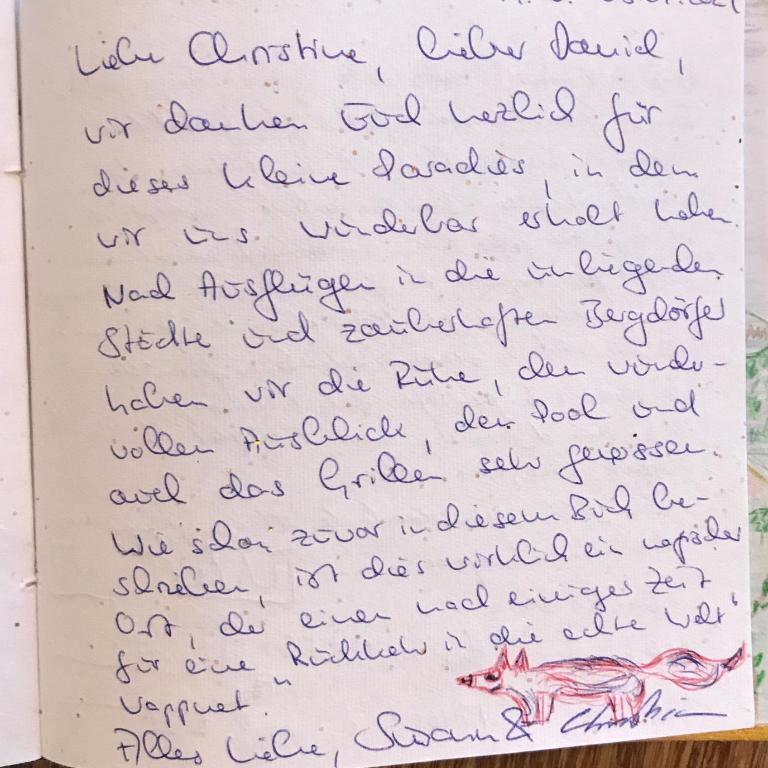 Liebe Christine, lieber Daniel,
wir danken Euch herzlich für
dieses kleine Paradies, in dem
wir uns wunderbar erholt haben.
Nach Ausflügen in die umliegenden
Städte und zauberhaften Bergdörfer
haben wir die Ruhe, den wunder-
vollen Ausblick, den Pool und
auch das Grillen sehr genossen.
Wie schon zuvor in diesem Buch be-
schrieben, ist dies wirklich ein magischer
Ort, der einen nach einiger Zeit
für eine „Rückkehr in die echte Welt“
wappnet.
Alles Liebe, &